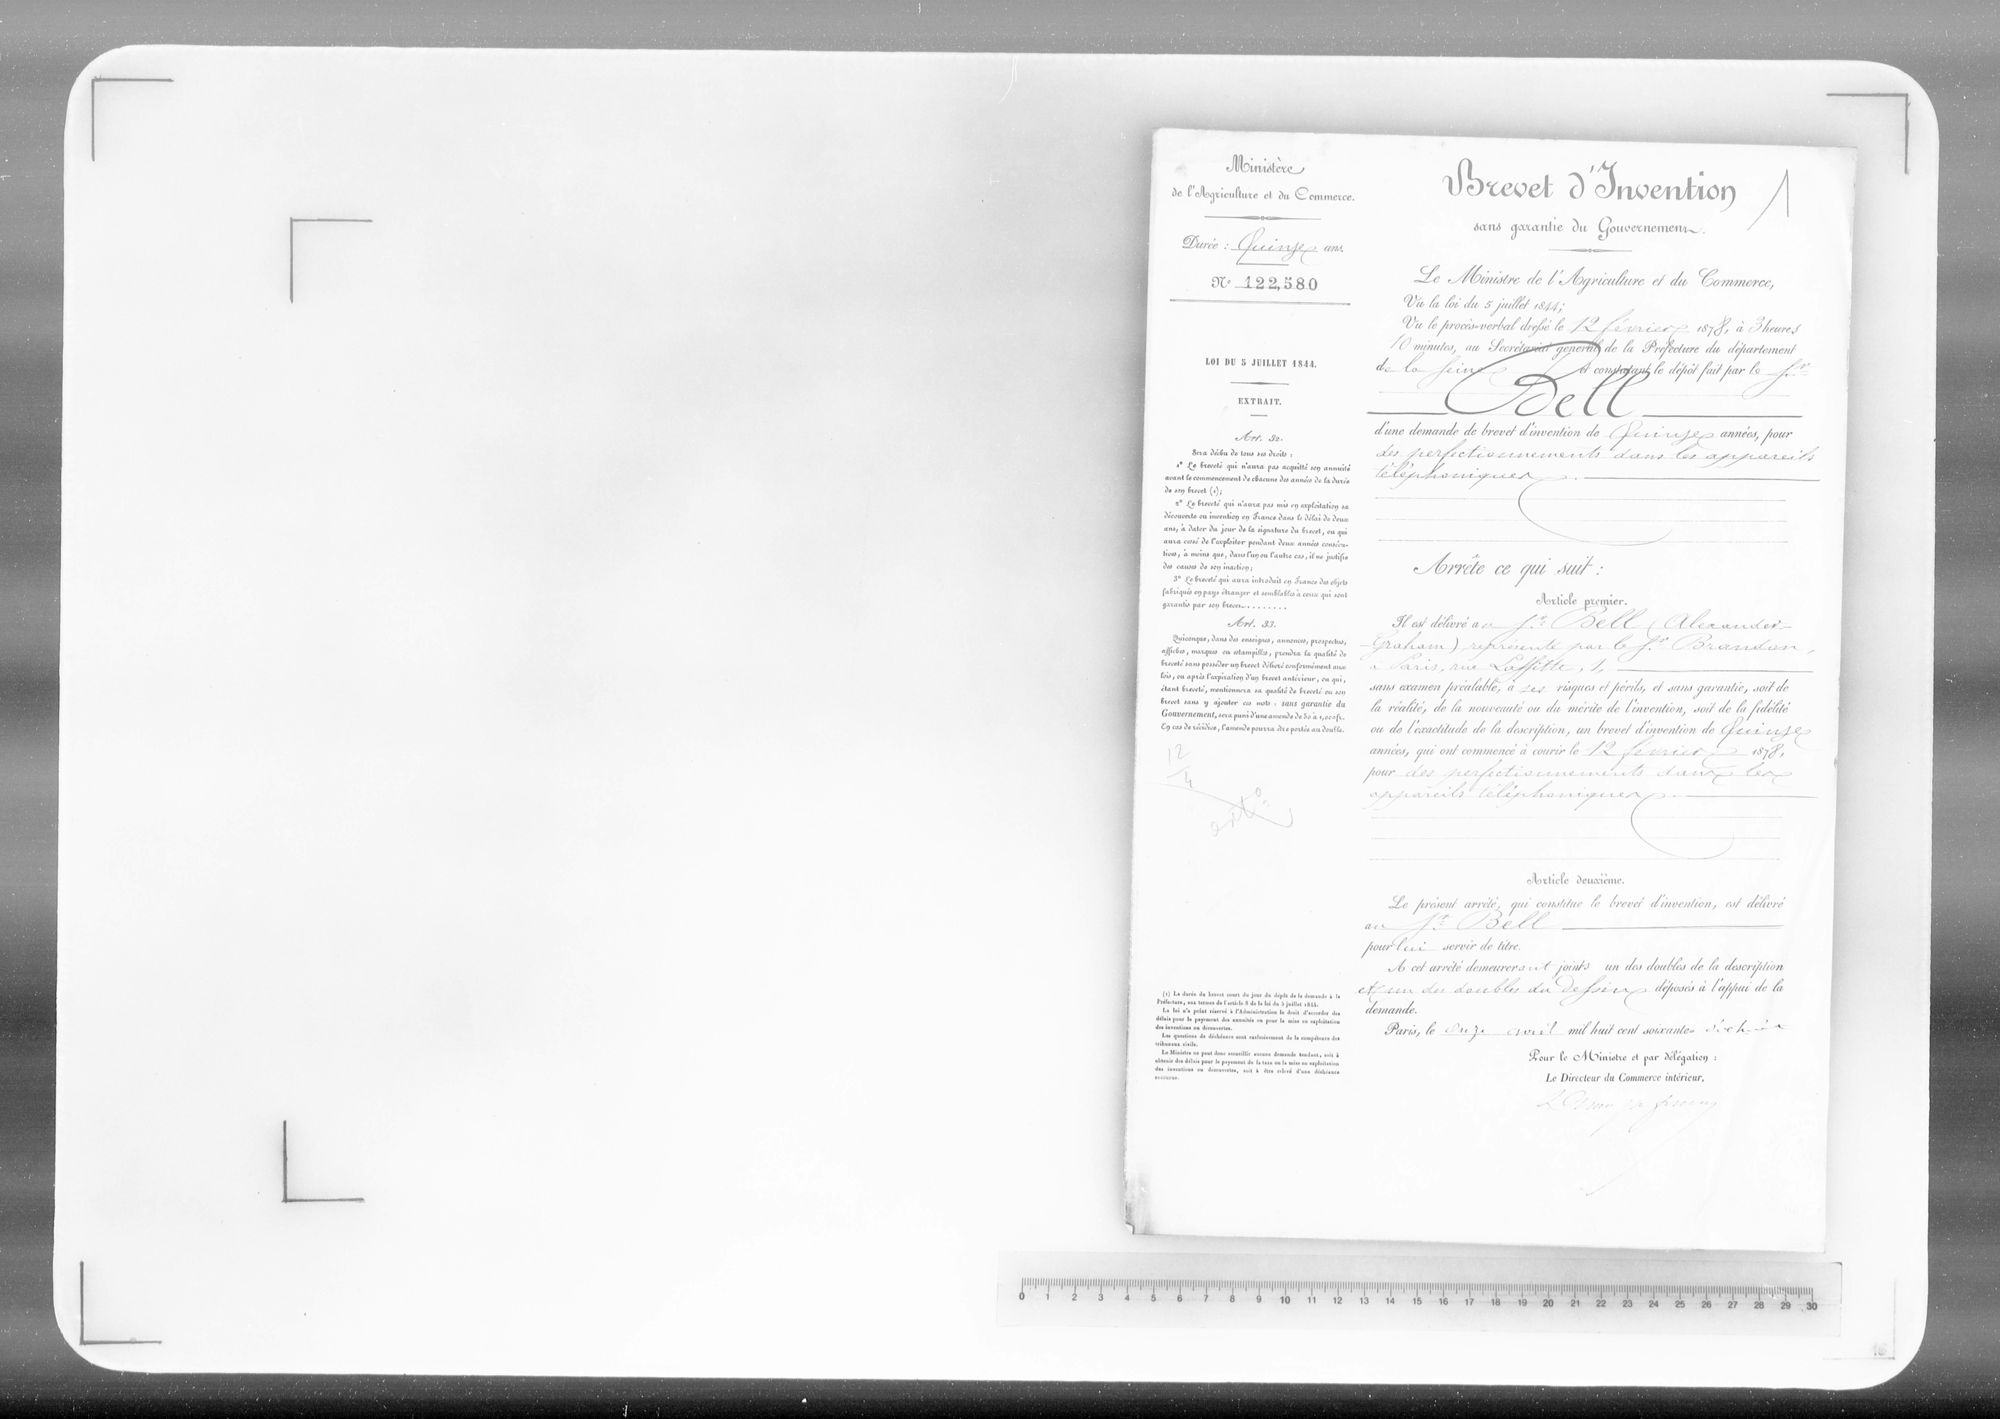 Ministère
de l'Agriculture et du Commerce.
Durée : Quinze ans.
N° 122,580
LOI DU 5 JUILLET 1844.
EXTRAIT.
Art. 32.
Sera déchu de tous ses droits :
1° Le breveté qui n'aura pas acquitté son annuité
avant le commencement de chacune des années de la durée
de son brevet (1);
2° Le breveté qui n'aura pas mis en exploitation sa
découverte ou invention en France dans le délai de deux
ans, à dater du jour de la signature du brevet, ou qui
aura cessé de l'exploiter pendant deux années consécu-
tives, à moins que, dans l'un ou l'autre cas, il ne justifie
des causes de son inaction;
3° Le breveté qui aura introduit en France des objets
fabriqués en pays étranger et semblables à ceux qui sont
garantis par son brevet.........
Art. 33.
Quiconque, dans des enseignes, annonces, prospectus,
affiches, marques ou estampilles, prendra la qualité de
breveté sans posséder un brevet délivré conformément aux
lois, ou après l'expiration d'un brevet antérieur, ou qui,
étant breveté, mentionnera sa qualité de breveté ou son
brevet sans y ajouter ces mots : sans garantie du
Gouvernement, sera puni d'une amende de 50 à 1,000 fr.
En cas de récidive, l'amende pourra être portée au double.
12
4
(1) La durée du brevet court du jour du dépôt de la demande à la
Préfecture, aux termes de l'article 8 de la loi du 5 juillet 1844.
La loi n'a point réservé à l'Administration le droit d'accorder des
délais pour le payement des annuités ou pour la mise en exploitation
des inventions ou découvertes.
Les questions de déchéance sont exclusivement de la compétence des
tribunaux civils.
Le Ministre ne peut donc accueillir aucune demande tendant, soit à
obtenir des délais pour le payement de la taxe ou la mise en exploitation
des inventions ou découvertes, soit à être relevé d'une déchéance
encourue.
Brevet d'Invention
1
sans garantie du Gouvernement.
Le Ministre de l'Agriculture et du Commerce,
Vu la loi du 5 juillet 1844;
Vu le procès-verbal dressé le 12 février 1878, à 3 heures
10 minutes, au Secrétariat général de la Préfecture du département
de la Seine et constatant le dépôt fait par le Sr.
Bell
d'une demande de brevet d'invention de Quinze années, pour
des perfectionnements dans les appareils
téléphoniques.
Arrête ce qui suit :
Article premier.
Il est délivré au Sr. Bell (Alexander
Graham) représenté par le Sr. Brandon,
à Paris, rue Laffitte, 1,
sans examen préalable, à ses risques et périls, et sans garantie, soit de
la réalité, de la nouveauté ou du mérite de l'invention, soit de la fidélité
ou de l'exactitude de la description, un brevet d'invention de Quinze
années, qui ont commencé à courir le 12 février 1878,
pour des perfectionnements dans les
appareils téléphoniques.
Article deuxième.
Le présent arrêté, qui constitue le brevet d'invention, est délivré
au Sr. Bell
pour lui servir de titre.
A cet arrêté demeureront joints un des doubles de la description
et un des doubles du dessin déposés à l'appui de la
demande.
Paris, le onze avril mil huit cent soixante-dix-huit
Pour le Ministre et par délégation :
Le Directeur du Commerce intérieur,
0 1 2 3 4 5 6 7 8 9 10 11 12 13 14 15 16 17 18 19 20 21 22 23 24 25 26 27 28 29 30
16